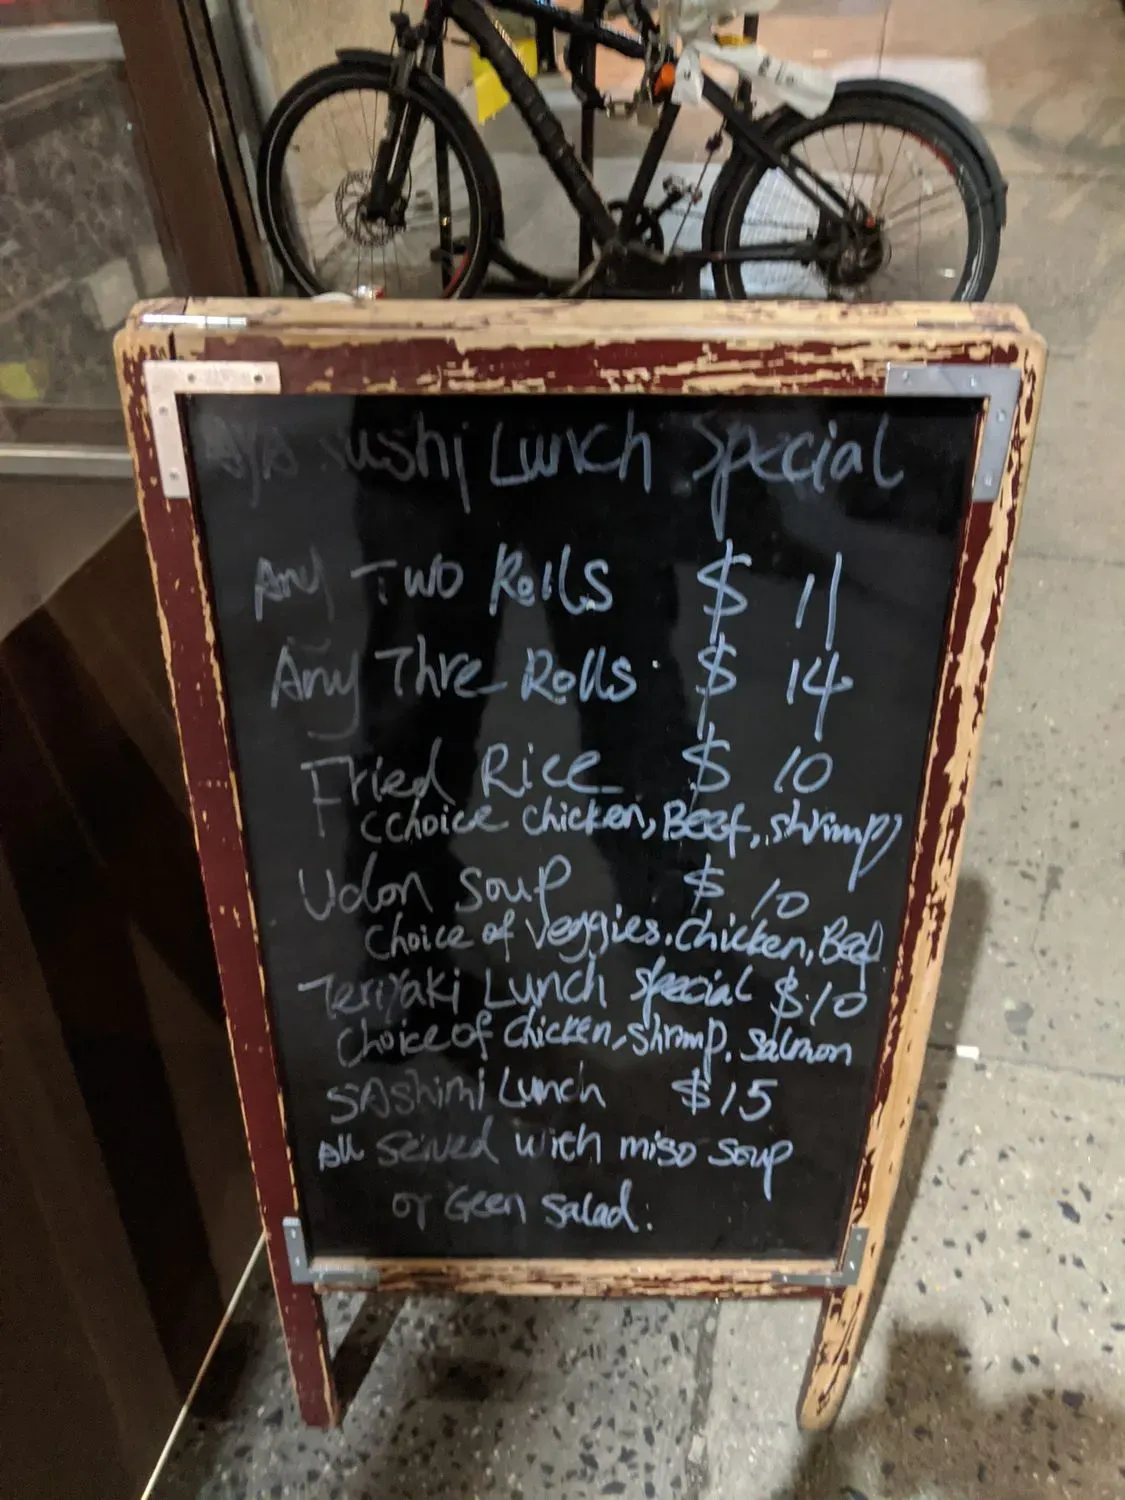 AYA Sushi Lunch Special
Any Two Rolls $ 11
Any Thre Rolls $ 14
Fried Rice $ 10
(Choice Chicken, Beef, shrimp)
Udon Soup $ 10
Choice of Veggies, Chicken, Beef
Teriyaki Lunch Special $10
Choice of Chicken, shrimp, Salmon
SAshimi Lunch $15
All Served with miso soup
or Geen Salad.